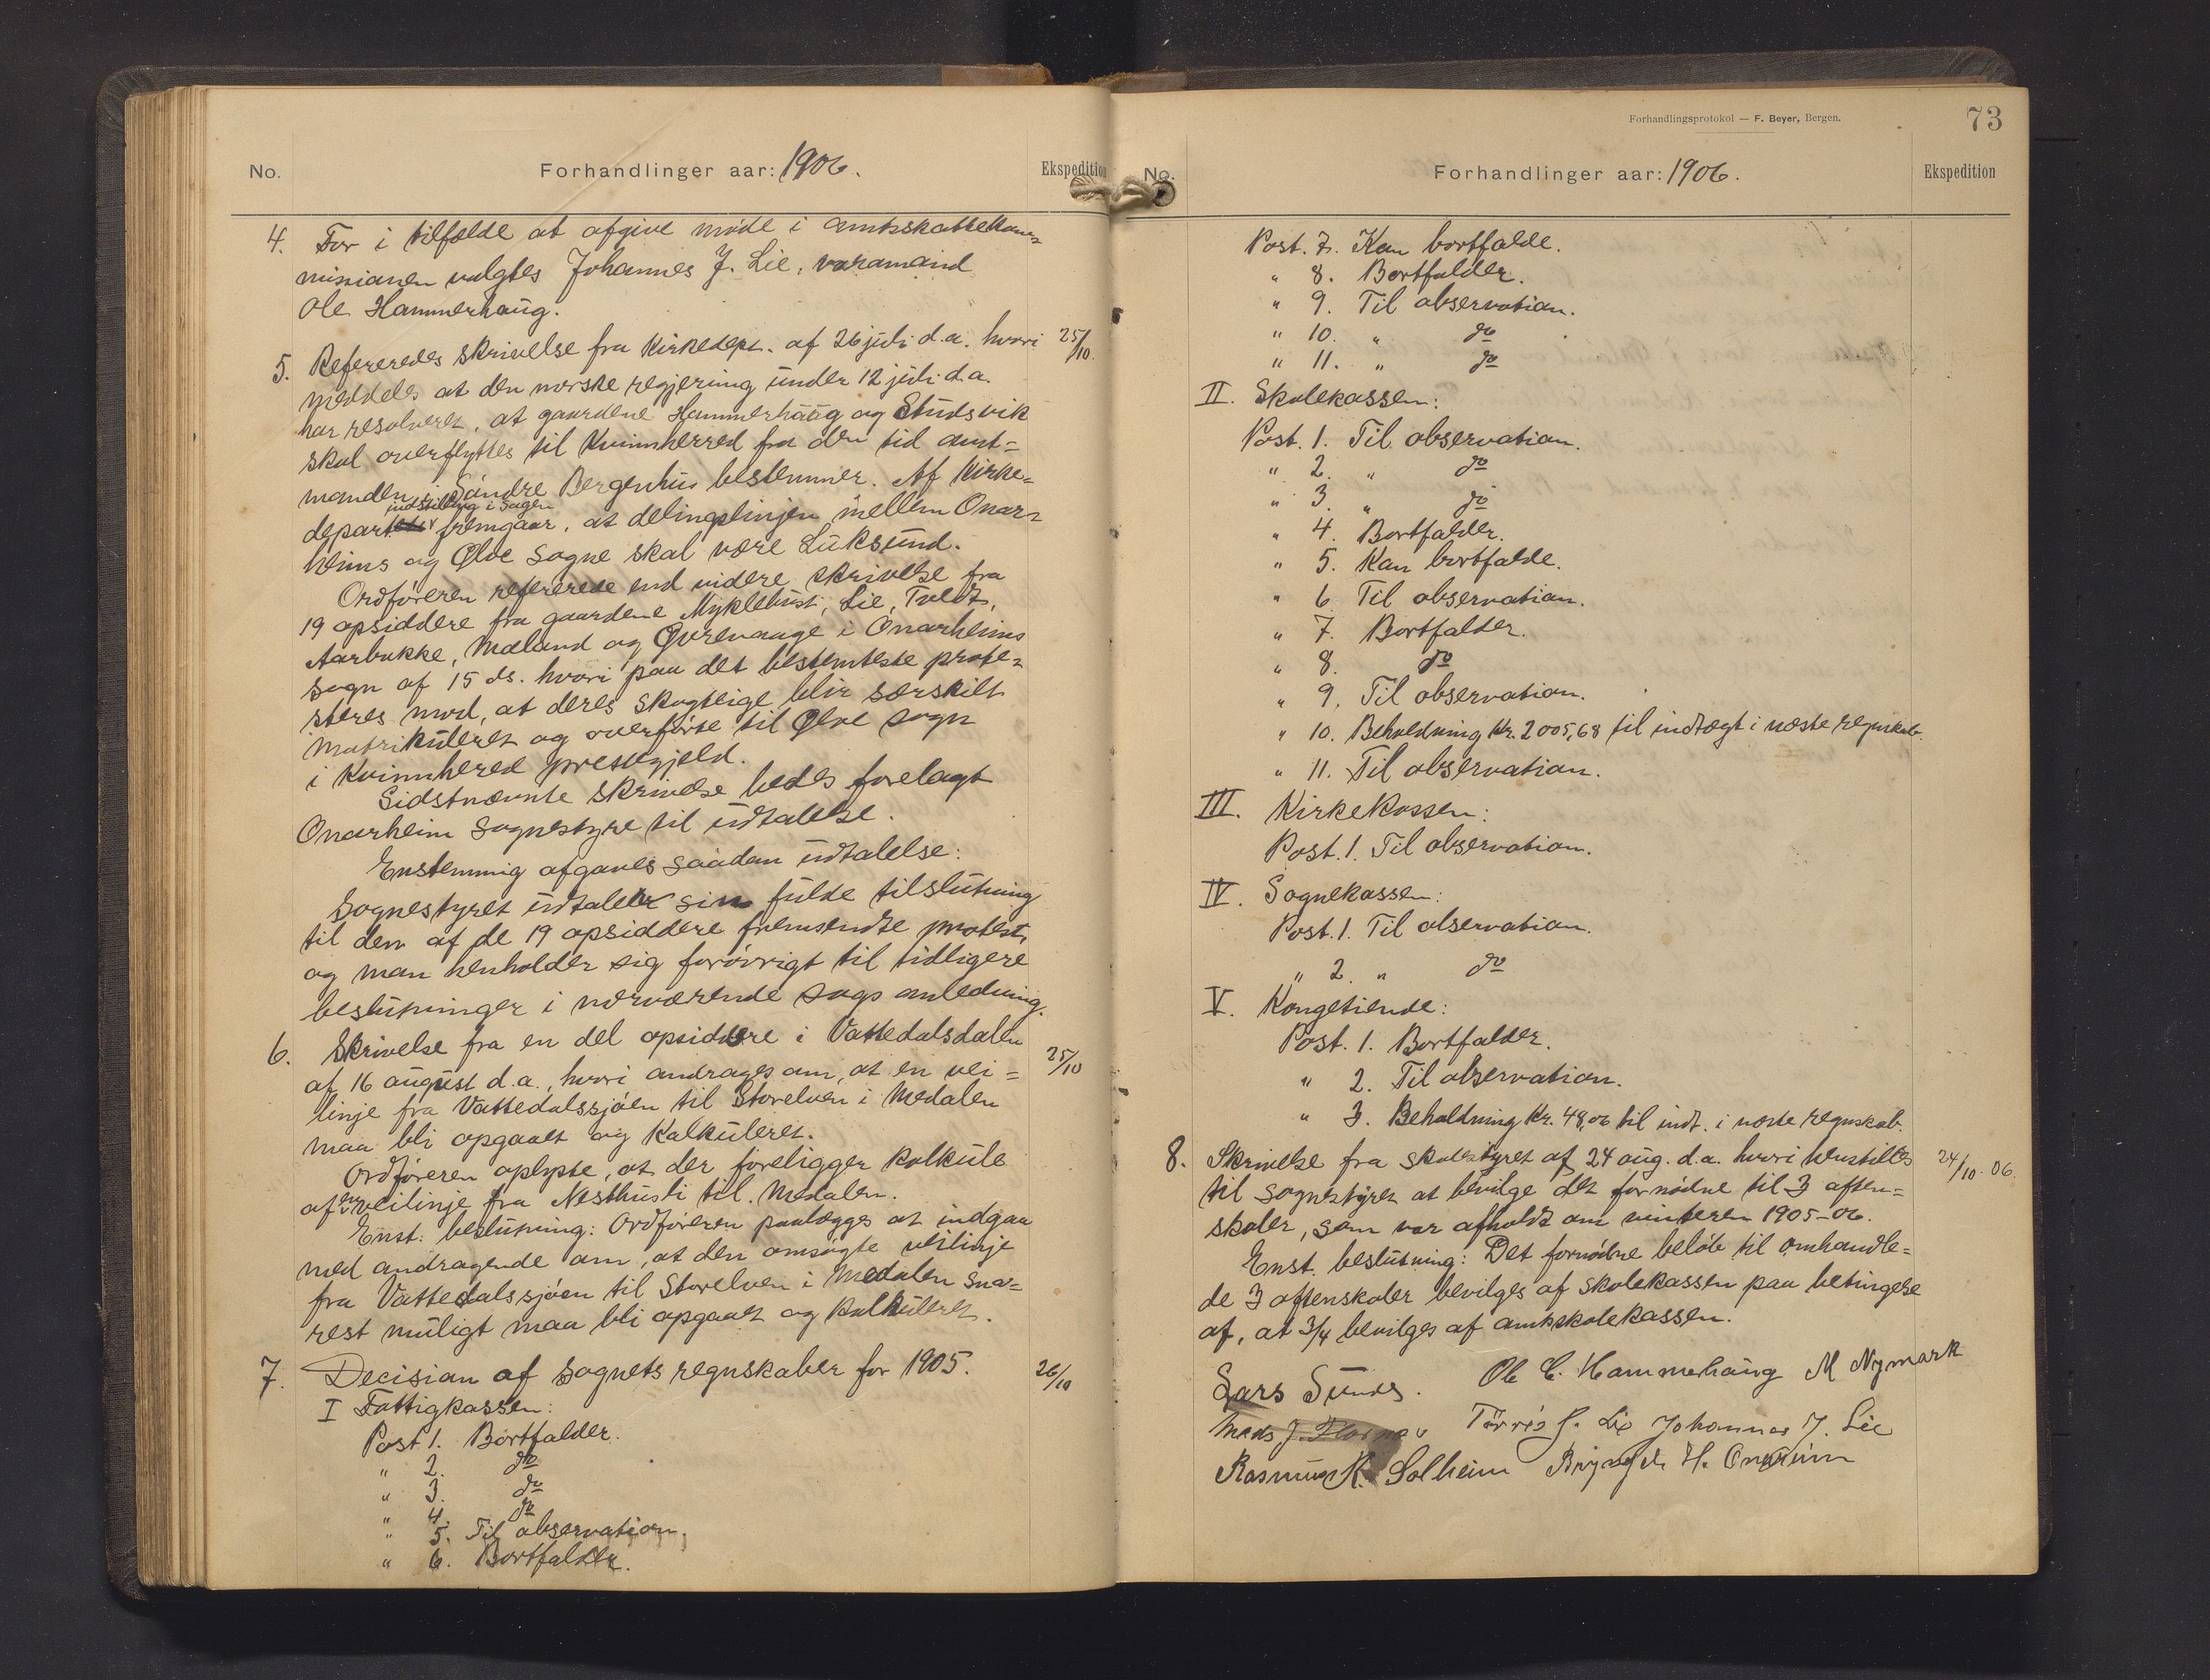 No. Forhandlinger aar: 1906. Ekspedition
4. For i tilfælde at afgive møde i amtsskattekom-
missionen valgtes Johannes J. Lie, varamand
Ole Hammerhaug.
5. Refereredes skrivelse fra Kirkedept. af 26 juli d.a. hvori 25/10.
meddeles at den norske regjering under 12 juli d.a.
har resolveret, at gaardene Hammerhaug og Studsvik
skal overflyttes til Kvinnherred fra den tid amt=
manden i Søndre Bergenhus bestemmer. Af Kirke=
indstilling i sagen
depart. fremgaar, at delingslinjen mellem Onar-
heims og Ølve sogne skal være Luksund.
Ordføreren refererede end videre skrivelse fra
19 opsiddere fra gaardene Myklebust, Lie, Tvedt,
Aarbakke, Mæland og Øvrevaage i Onarheims
sogn af 15 ds. hvori paa det bestemteste prote-
steres mod, at deres skogteige blir særskilt
matrikuleret og overførte til Ølve sogn
i Kvinnhered prestegjeld.
Sidstnævnte skrivelse bedes forelagt
Onarheim sognestyre til udtalelse.
Enstemmig afgaves saadan udtalelse:
Sognestyret udtaler sin fulde tilslutning
til den af de 19 opsiddere fremsendte protest,
og man henholder sig forøvrigt til tidligere
beslutninger i nærværende sags anledning.
6. Skrivelse fra en del opsiddere i Vattedalsdalen 25/10
af 16 august d.a., hvori andrages om, at en vei=
linje fra Vattedalssjøen til Storelven i Medalen
maa bli opgaaet og kalkuleret.
Ordføreren oplyste, at der foreligger kalkule
af en veilinje fra Nesthusli til Medalen.
Enst. beslutning: Ordføreren paalægges at indgaa
med andragende om, at den omsøgte veilinje
fra Vattedalssjøen til Storelven i Medalen sna=
rest muligt maa bli opgaaet og kalkuleret.
7. Decision af sognets regnskaber for 1905. 26/10
I Fattigkassen:
Post 1. Bortfalder.
" 2. do
" 3. do
" 4. do
" 5. Til observation.
" 6. Bortfalder.
Forhandlingsprotokol — F. Beyer, Bergen. 73
No. Forhandlinger aar: 1906. Ekspedition
Post. 7. Kan bortfalde.
" 8. Bortfalder.
" 9. Til observation.
" 10. " do
" 11. " do
II. Skolekassen:
Post. 1. Til observation.
" 2. " do
" 3. " do
" 4. Bortfalder.
" 5. Kan bortfalde.
" 6 Til observation.
" 7. Bortfalder.
" 8. do
" 9. Til observation.
" 10. Beholdning Kr. 2005,68 til indtægt i næste regnskab.
" 11. Til observation.
III. Kirkekassen:
Post. 1. Til observation.
IV. Sognekassen:
Post. 1. Til observation.
" 2. " do
V. Kongetiende:
Post. 1. Bortfalder.
" 2. Til observation.
" 3. Beholdning Kr. 48,06 til indt. i næste regnskab.
8. Skrivelse fra skolestyret af 24 aug. d.a. hvori henstilles 24/10 06.
til sognestyret at bevilge det fornødne til 3 aften=
skoler, som var afholdt om vinteren 1905-06.
Enst. beslutning: Det fornødne beløb til omhandle=
de 3 aftenskoler bevilges af skolekassen paa betingelse
af, at 3/4 bevilges af amtsskolekassen.
Lars Sunds. Ole C. Hammerhaug M Nymark
Mads J. Tørris J. Lie Johannes J. Lie
Rasmus K. Solheim Brynjel H. Onarheim